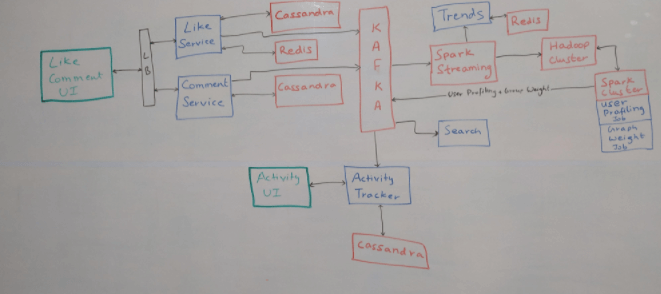 Like
Comment
UI
L
B
Like
Service
Cassandra
Redis
Comment
Service
Cassandra
K
A
F
K
A
Trends
Redis
Spark
Streaming
Hadoop
Cluster
Spark
Cluster
User
Profiling
Job
Graph
Weight
Job
User Profiling + Graph Weight
Search
Activity
UI
Activity
Tracker
Cassandra